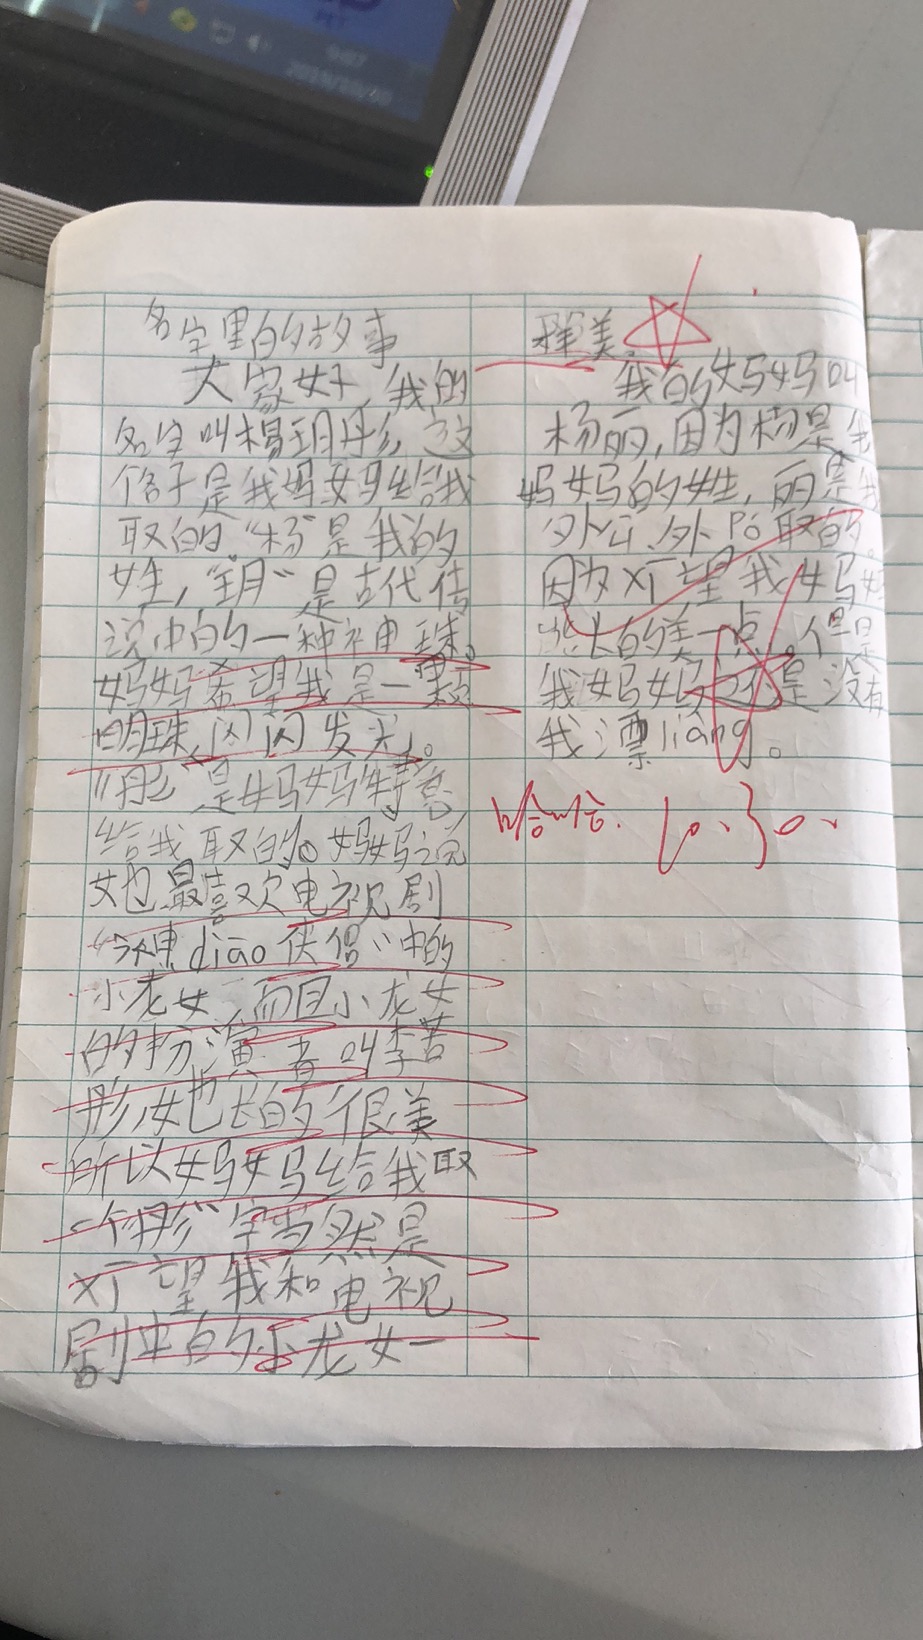 名字里的故事
大家好,我的
名字叫杨玥彤,这
个名子是我妈妈给我
取的“杨”是我的
姓,“玥”是古代传
说中的一种神珠。
妈妈希望我是一颗
明珠,闪闪发光。
“彤”是妈妈特意
给我取的。妈妈说
她最喜欢电视剧
“神diāo侠侣”中的
小龙女,而且小龙女
的扮演者叫李若
彤,她长的很美
所以妈妈给我取
个“彤”字当然是
望我和电视
剧中的小龙女一
样美。
我的妈妈叫
杨丽,因为杨是我
妈妈的姓,丽是我
外公、外Pó取的。
因为 望我妈妈
长的美一点。但是
我妈妈还是没有
我漂liang。
哈哈。